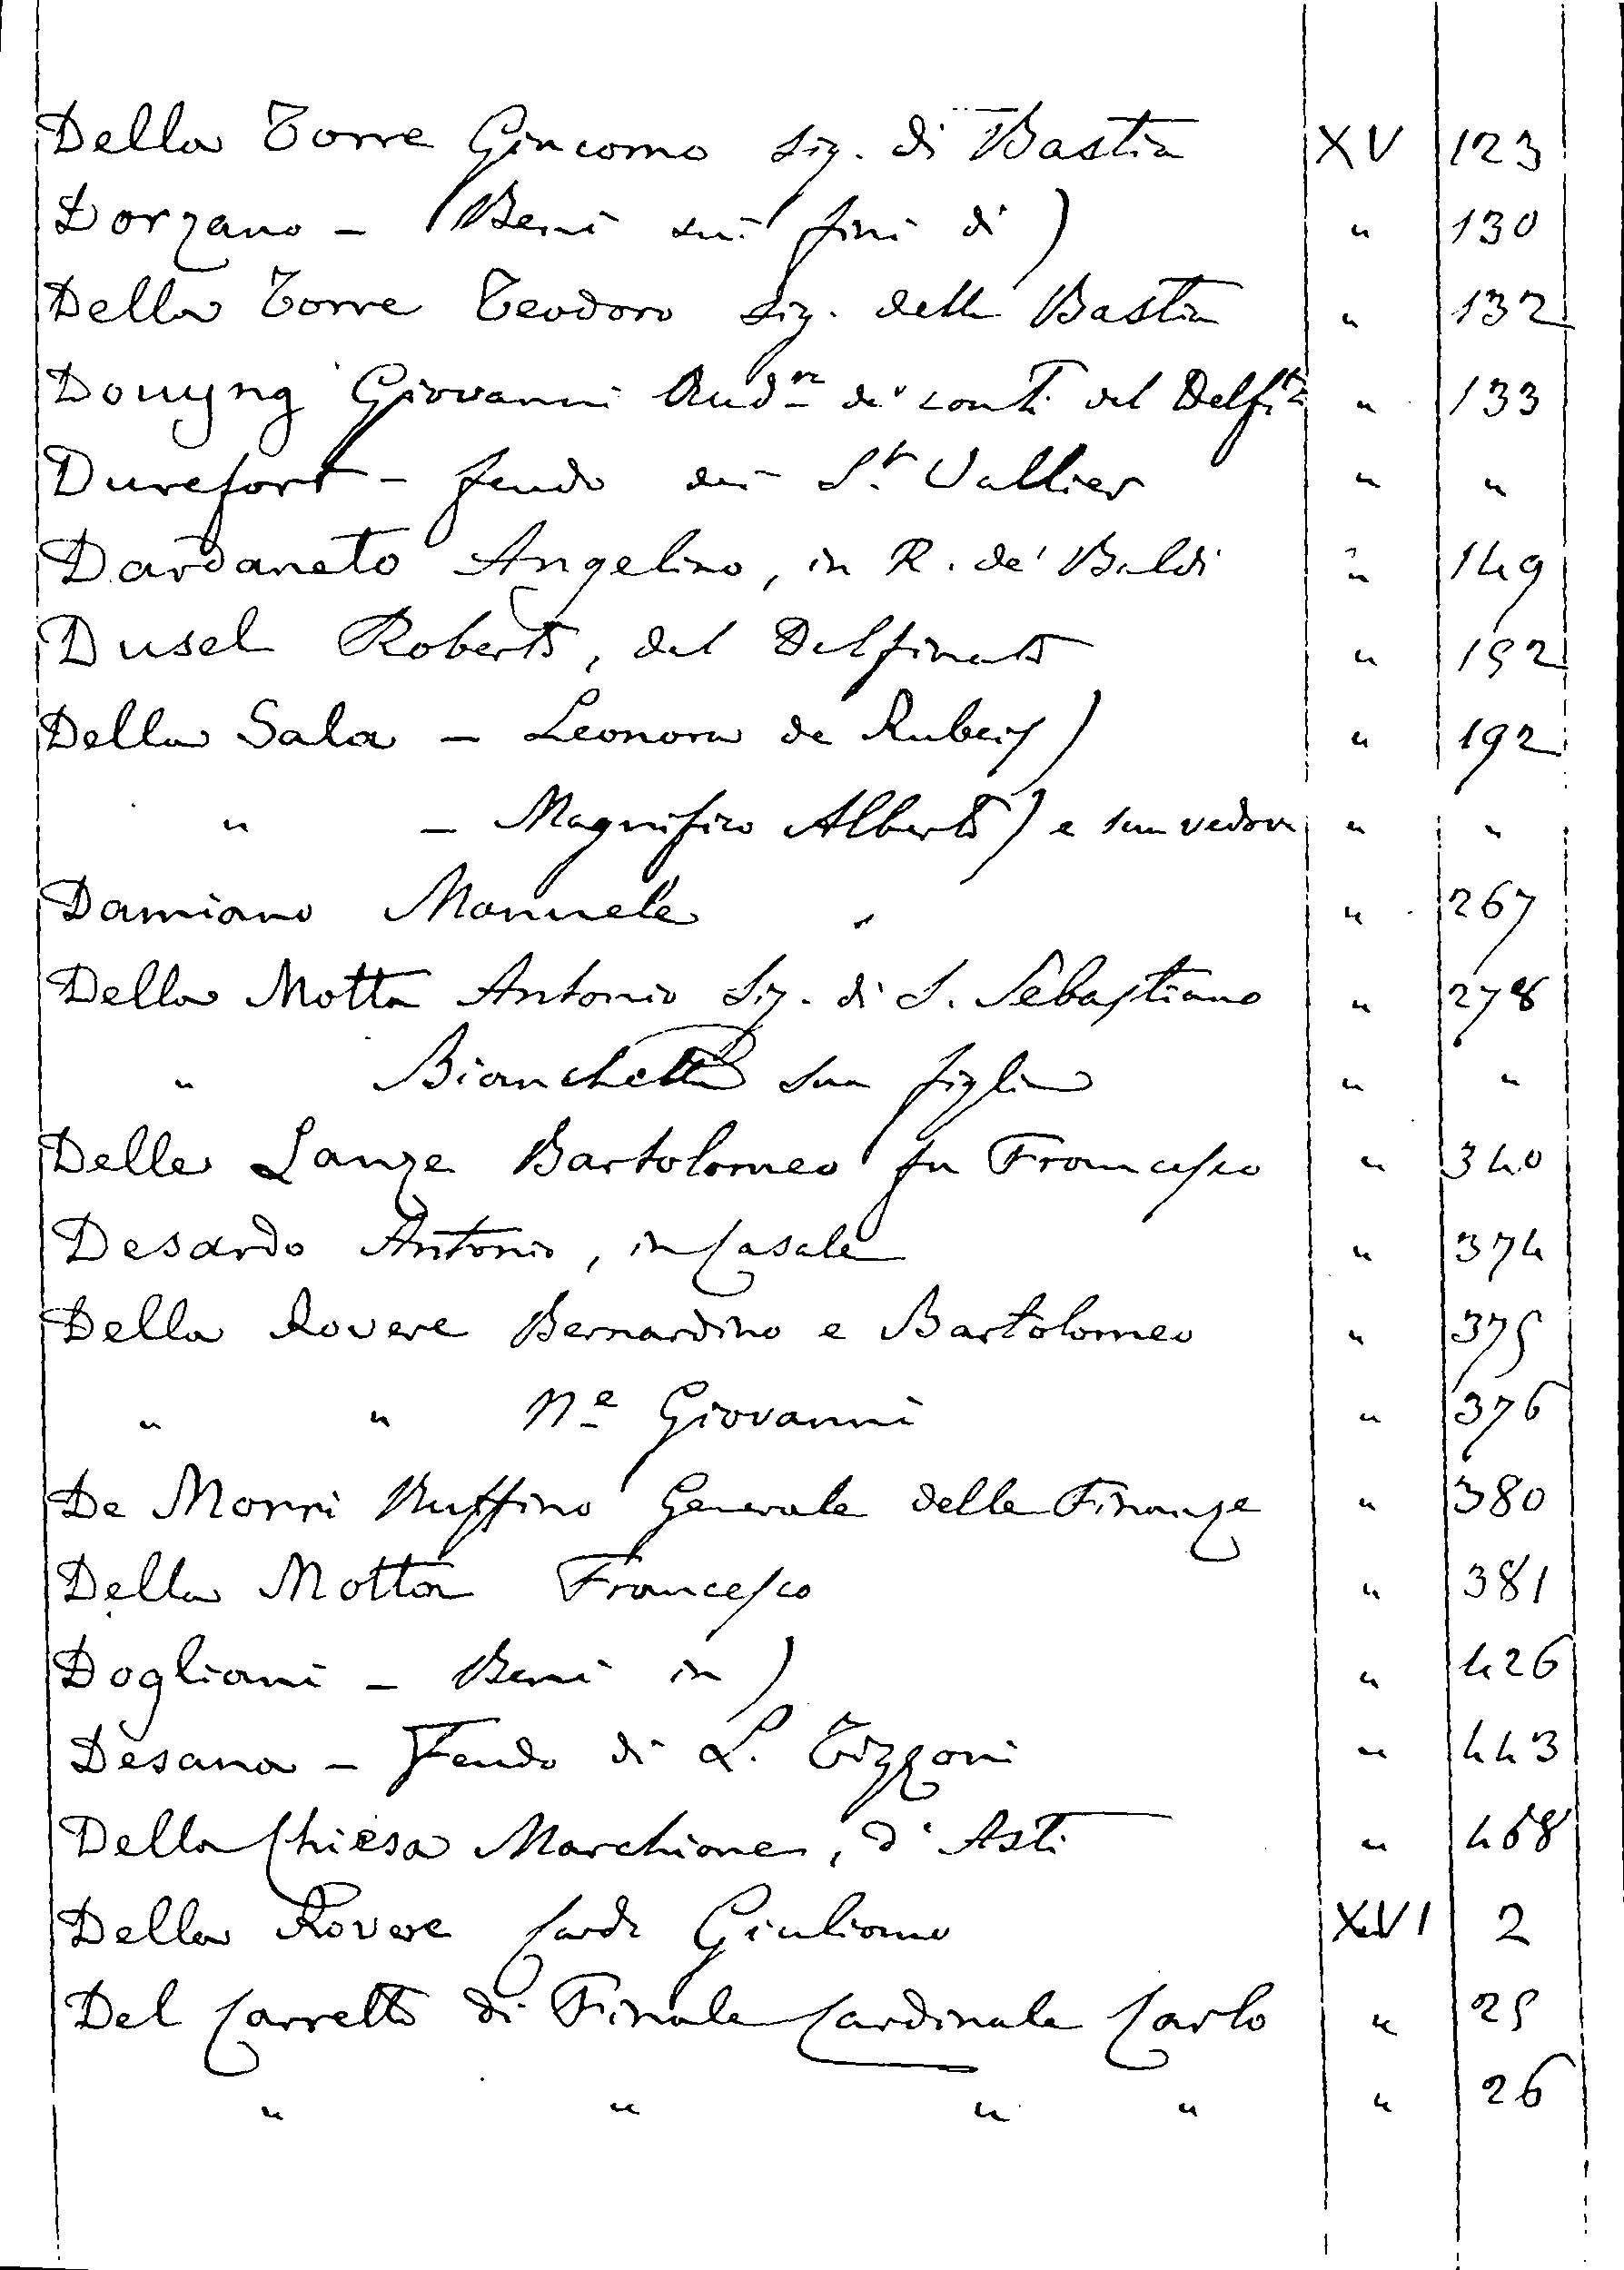 Della Torre Giacomo sig. di Bastia XV 123
Dorzano - Beni sui fini di) " 130
Della Torre Teodoro sig. della Bastia " 132
Douyng Giovanni Aud.re de' conti del Delf.to " 133
Durefort - feudo di S.t Vallier " "
Dardaneto Angelino, in R. de' Baldi " 149
Dusel Roberto, del Delfinato " 192
Della Sala - Leonora de Rubeis) " 192
" - Magnifico Alberto) e sua vedova " "
Damiano Manuele " 267
Della Motta Antonio Sig. di S. Sebastiano " 278
" Bianchetta sua figlia " "
Delle Lanze Bartolomeo fu Francesco " 340
Desardo Antonio, in Casale " 374
Della Rovere Bernardino e Bartolomeo " 375
" " N.e Giovanni " 376
De Morri Ruffino Generale delle Finanze " 380
Della Motta Francesco " 381
Dogliani - Beni in) " 426
Desana - Feudo di L. Tizzoni " 443
Della Chiesa Marchione, d'Asti " 468
Della Rovere Card. Giuliano XVI 2
Del Carretto di Finale Cardinale Carlo " 25
" " " " " 26